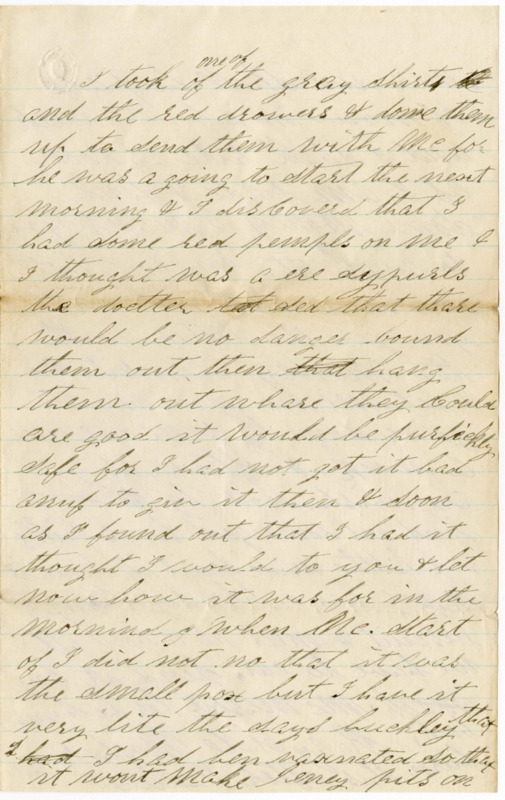 one of
I took of the gray shirts
and the red drowers & dome them
up to send them with Mc for
he was a going to start the next
morning & I discoverd that I
had some red pemples on me &
I thought was a ere sypurls
the docttor sed that thare
would be no danger bound
them out then that hang
them out whare they Could
are good it would be purfickly
safe for I had not got it bad
anuf to giv it then & soon
as I found out that I had it
thought I would to you & let
now how it was for in the
morning when Mc. start
of I did not no that it was
the small pox but I have it
very lite the says buckley that
I had I had ben vaxinated so that
it wont make eney pits on